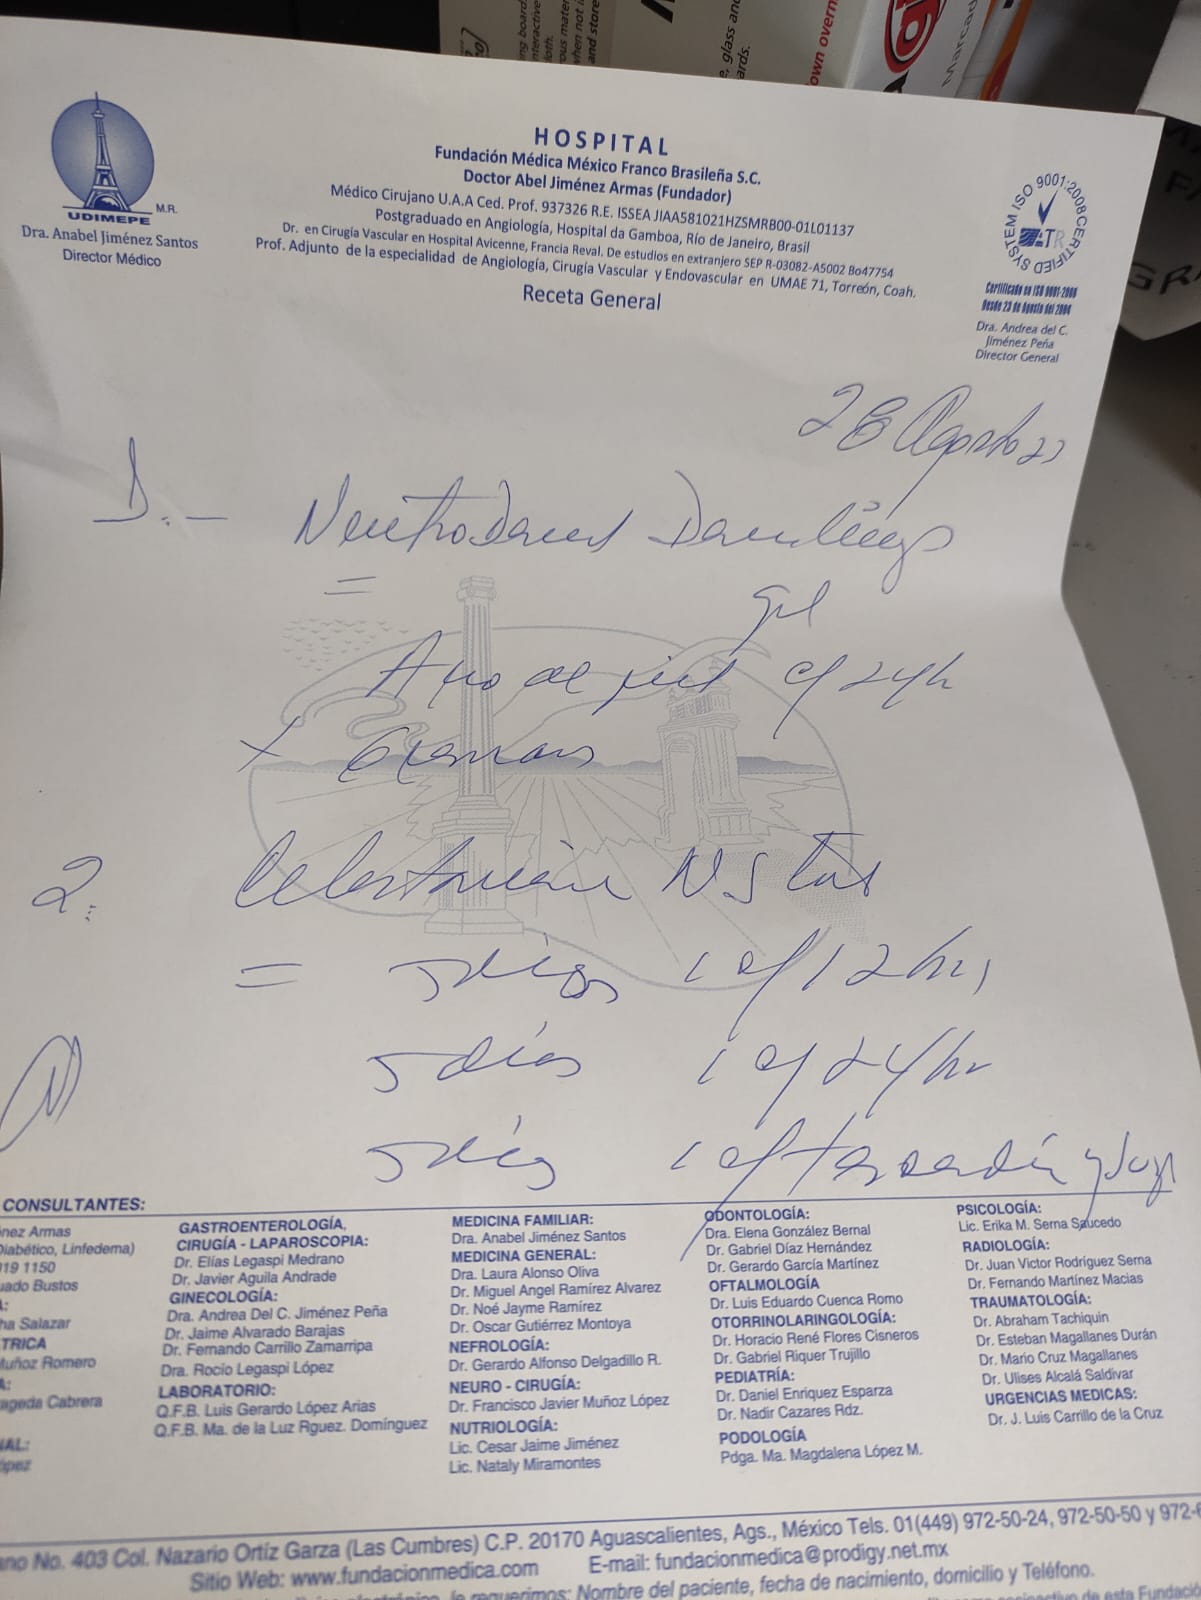 UDIMEPE M.R.
Dra. Anabel Jiménez Santos
Director Médico
HOSPITAL
Fundación Médica México Franco Brasileña S.C.
Doctor Abel Jiménez Armas (Fundador)
Médico Cirujano U.A.A Ced. Prof. 937326 R.E. ISSEA JIAA581021HZSMRB00-01L01137
Postgraduado en Angiología, Hospital da Gamboa, Río de Janeiro, Brasil
Dr. en Cirugía Vascular en Hospital Avicenne, Francia Reval. De estudios en extranjero SEP R-03082-A5002 Bo47754
Prof. Adjunto de la especialidad de Angiología, Cirugía Vascular y Endovascular en UMAE 71, Torreón, Coah.
Receta General
SYSTEM ISO 9001:2008 CERTIFIED
Certificado en ISO 9001-2008
Desde 23 de Agosto del 2004
Dra. Andrea del C.
Jiménez Peña
Director General
Agosto
gel
c/ 24h
2.
5 días 1 c/ 12 hrs
5 días 1 c/ 24 hr
5 días 1 c/
CONSULTANTES:
nez Armas
Diabético, Linfedema)
019 1150
uado Bustos
ha Salazar
TRICA
Muñoz Romero
ageda Cabrera
NAL:
ópez
GASTROENTEROLOGÍA,
CIRUGÍA - LAPAROSCOPIA:
Dr. Elías Legaspi Medrano
Dr. Javier Aguila Andrade
GINECOLOGÍA:
Dra. Andrea Del C. Jiménez Peña
Dr. Jaime Alvarado Barajas
Dr. Fernando Carrillo Zamarripa
Dra. Rocio Legaspi López
LABORATORIO:
Q.F.B. Luis Gerardo López Arias
Q.F.B. Ma. de la Luz Rguez. Domínguez
MEDICINA FAMILIAR:
Dra. Anabel Jiménez Santos
MEDICINA GENERAL:
Dra. Laura Alonso Oliva
Dr. Miguel Angel Ramírez Alvarez
Dr. Noé Jayme Ramírez
Dr. Oscar Gutiérrez Montoya
NEFROLOGÍA:
Dr. Gerardo Alfonso Delgadillo R.
NEURO - CIRUGÍA:
Dr. Francisco Javier Muñoz López
NUTRIOLOGÍA:
Lic. Cesar Jaime Jiménez
Lic. Nataly Miramontes
ODONTOLOGÍA:
Dra. Elena González Bernal
Dr. Gabriel Díaz Hernández
Dr. Gerardo García Martínez
OFTALMOLOGÍA
Dr. Luis Eduardo Cuenca Romo
OTORRINOLARINGOLOGÍA:
Dr. Horacio René Flores Cisneros
Dr. Gabriel Riquer Trujillo
PEDIATRÍA:
Dr. Daniel Enriquez Esparza
Dr. Nadir Cazares Rdz.
PODOLOGÍA
Pdga. Ma. Magdalena López M.
PSICOLOGÍA:
Lic. Erika M. Serna Saucedo
RADIOLOGÍA:
Dr. Juan Victor Rodríguez Serna
Dr. Fernando Martínez Macias
TRAUMATOLOGÍA:
Dr. Abraham Tachiquin
Dr. Esteban Magallanes Durán
Dr. Mario Cruz Magallanes
Dr. Ulises Alcalá Saldivar
URGENCIAS MEDICAS:
Dr. J. Luis Carrillo de la Cruz
ano No. 403 Col. Nazario Ortíz Garza (Las Cumbres) C.P. 20170 Aguascalientes, Ags., México Tels. 01(449) 972-50-24, 972-50-50 y 972-6
Sitio Web: www.fundacionmedica.com E-mail: fundacionmedica@prodigy.net.mx
le requerimos: Nombre del paciente, fecha de nacimiento, domicilio y Teléfono.
de esta Fundació